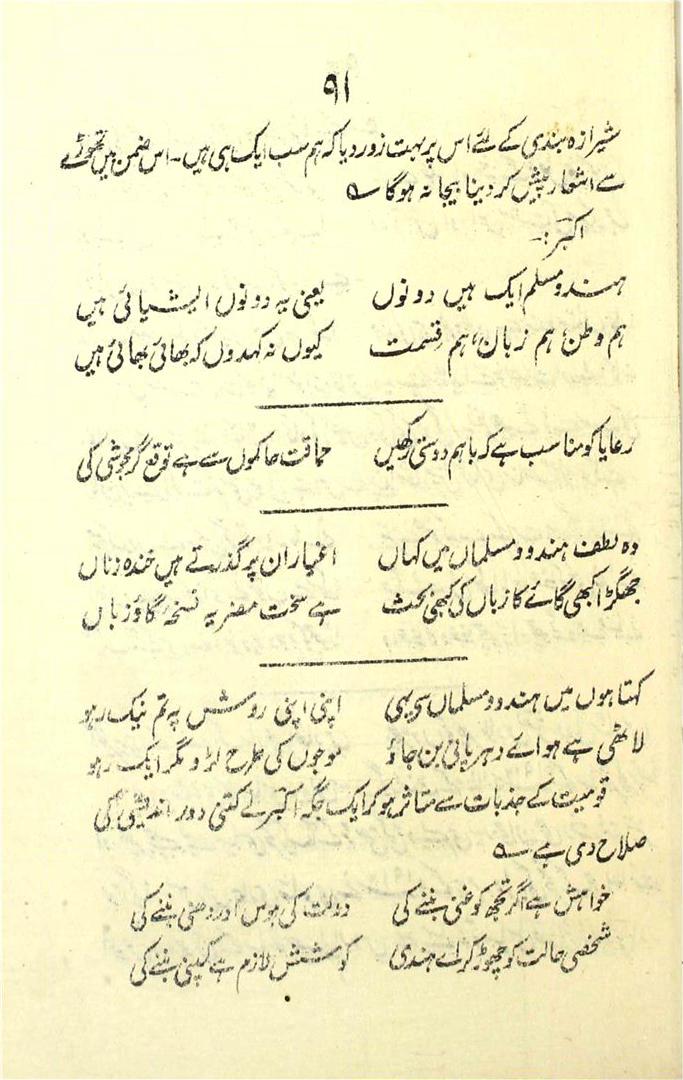 ۹۱
شیرازہ بندی کے لئے اس پر بہت زور دیا کہ ہم سب ایک ہی ہیں۔ اس ضمن میں تھوڑے
سے اشعار پیش کر دینا بیجا نہ ہوگا ؎
اکبر:۔
ہندو مسلم ایک ہیں دونوں یعنی یہ دونوں ایشیائی ہیں
ہم وطن، ہم زبان، ہم قسمت کیوں نہ کہدوں کہ بھائی بھائی ہیں
رعایا کو مناسب ہے کہ باہم دوستی رکھیں حماقت حاکموں سے ہے توقع گرمجوشی کی
وہ لطف ہندو و مسلماں میں کہاں اغیار ان پر گذرتے ہیں خندہ زناں
جھگڑا کبھی گائے کا زباں کی کبھی بحث ہے سخت مضر یہ نسخۂ گاؤ زباں
کہتا ہوں میں ہندو و مسلماں سے یہی اپنی اپنی روش پہ تم نیک رہو
لاٹھی ہے ہوائے دہر پانی بن جاؤ موجوں کی طرح لڑو مگر ایک رہو
قومیت کے جذبات سے متاثر ہو کر ایک جگہ اکبر نے کتنی دور اندیشی کی
صلاح دی ہے ؎
خواہش ہے اگر تجھ کو غنی بننے کی دولت کی ہوس اور دھنی بننے کی
شخصی حالت کو چھوڑ کر اے ہندی کوشش لازم ہے کمپنی بننے کی